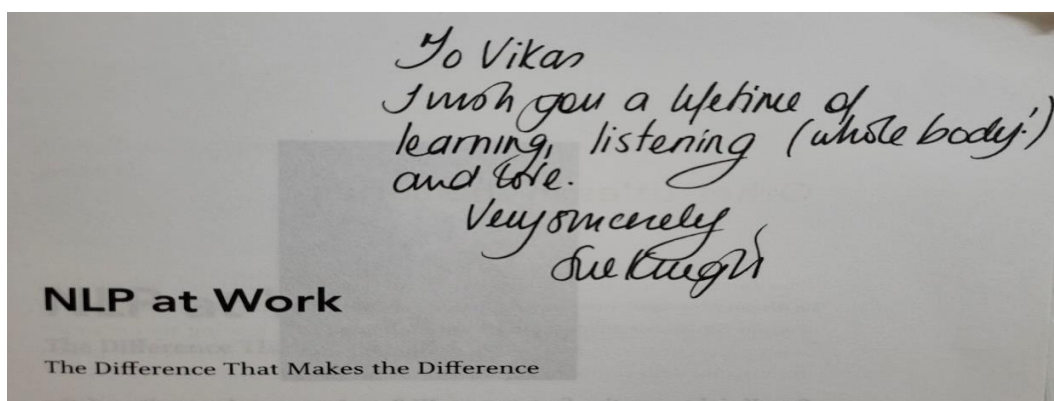 To Vikas
I wish you a lifetime of
learning, listening (whole body!)
and love.
Very sincerely
Sue Knight
NLP at Work
The Difference That Makes the Difference